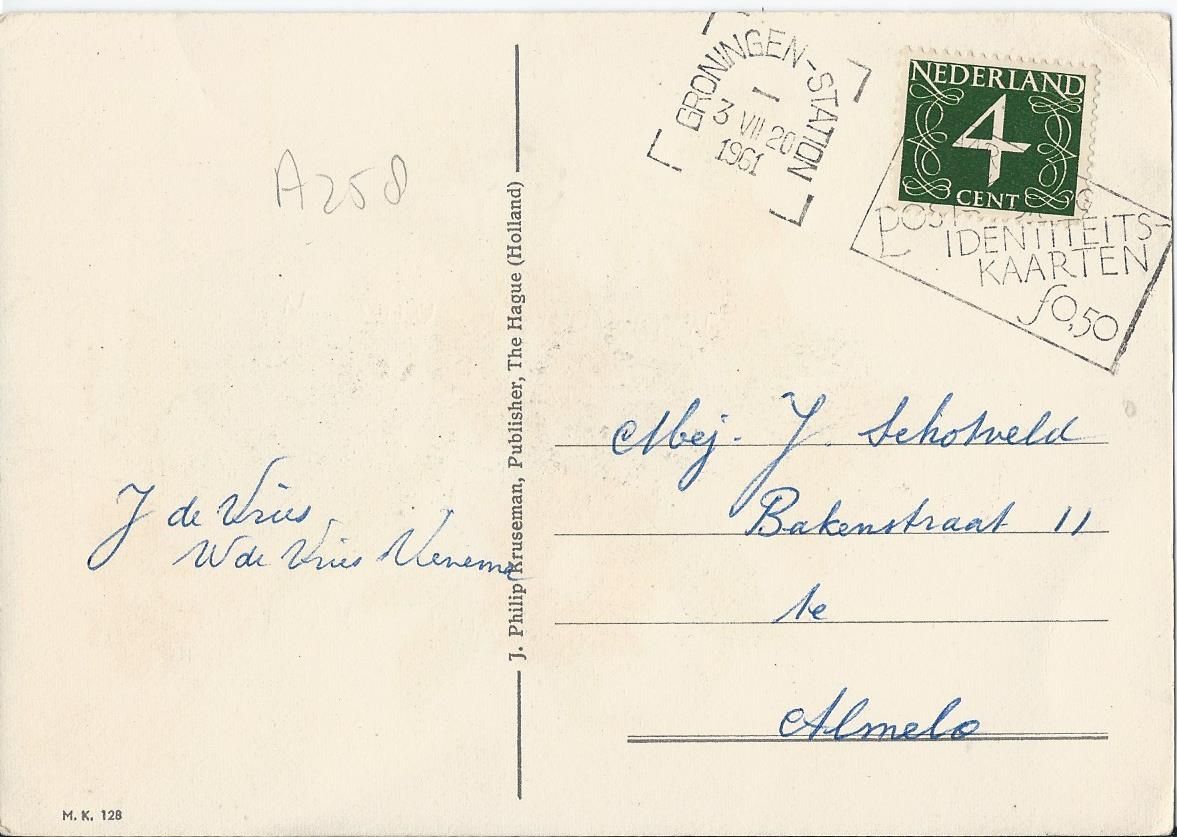 GRONINGEN-STATION
3 VII 20
1961
NEDERLAND
4
CENT
IDENTITEITS-
KAARTEN
f0,50
A258
J. Philip Kruseman, Publisher, The Hague (Holland)
Mej. J. Schotveld
Bakenstraat 11
te
Almelo
J de Vries
W de Vries Venema
M. K. 128